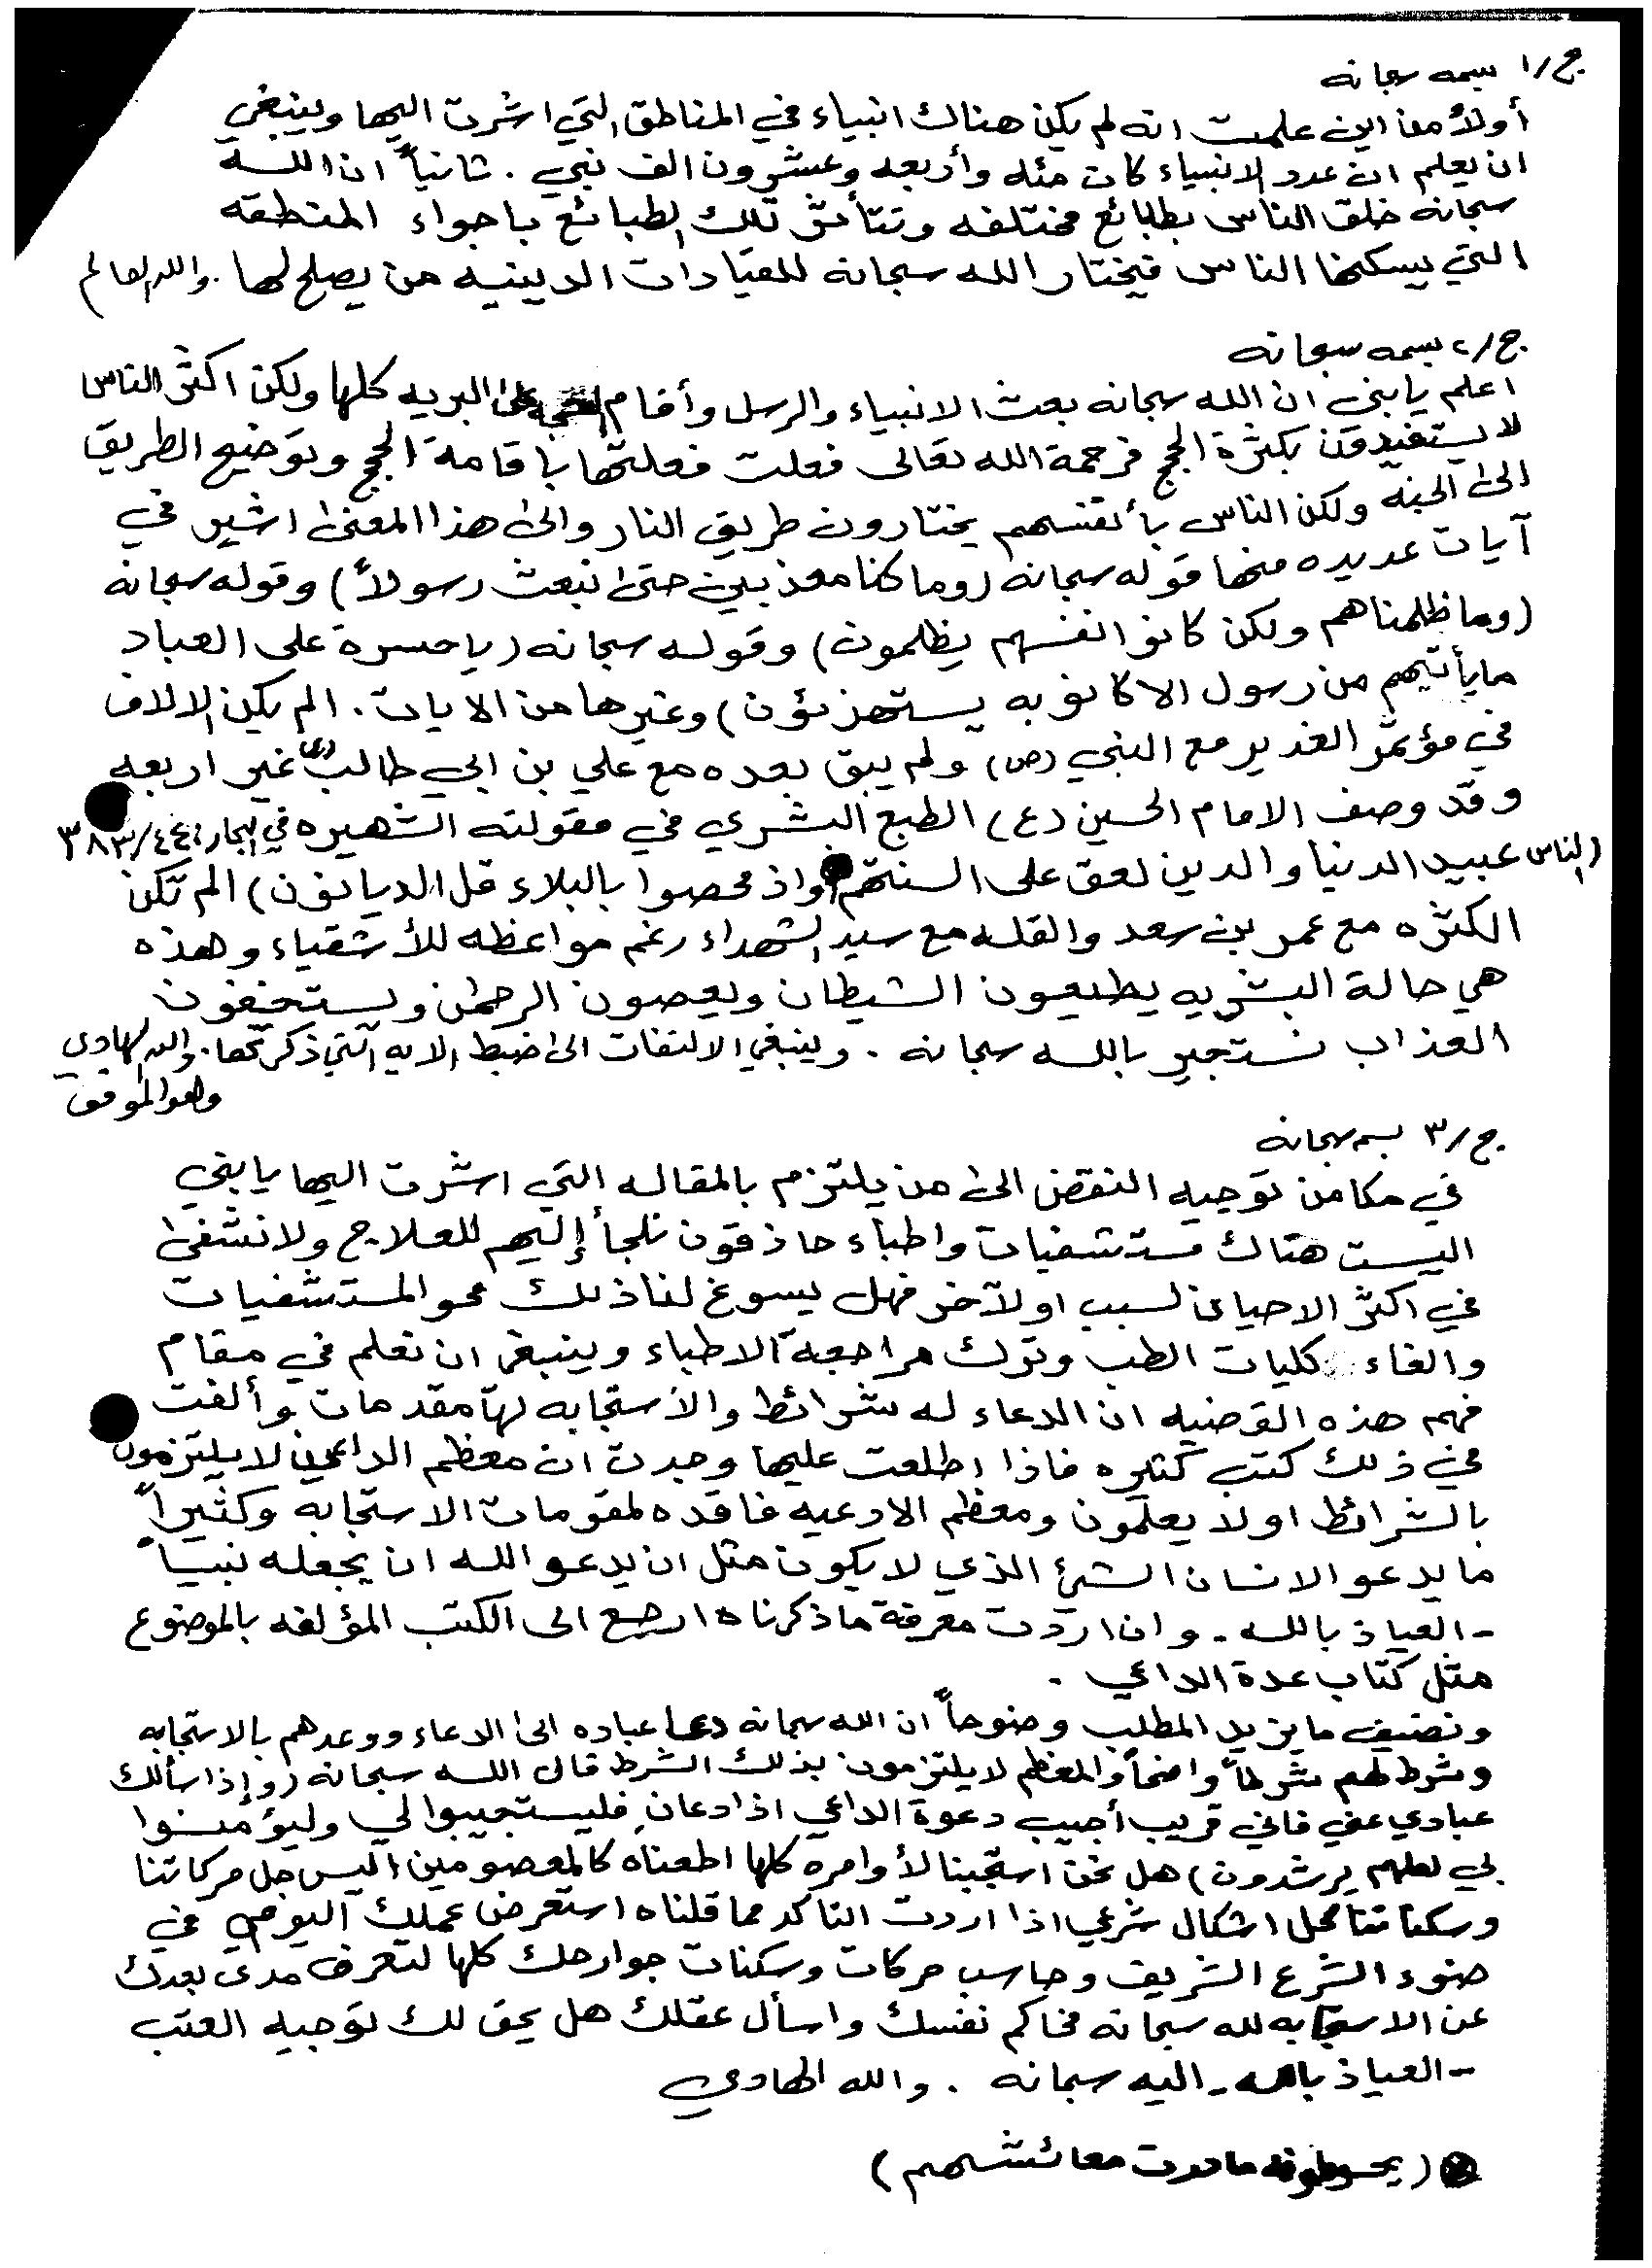 ج/١ بسمه سبحانه
أولاً من اين علمت انه لم يكن هناك انبياء في المناطق التي اشرت اليها وينبغي
ان يعلم ان عدد الانبياء كان مئه وأربعه وعشرون الف نبي . ثانياً ان الله
سبحانه خلق الناس بطبائع مختلفه وتتأثر تلك الطبائع باجواء المنطقه
التي يسكنها الناس فيختار الله سبحانه للقيادات الدينيه من يصلح لها . والله العالم
ج/٢ بسمه سبحانه
اعلم يا بني ان الله سبحانه بعث الانبياء والرسل وأقام الحجة على البريه كلها ولكن اكثر الناس
لا يستفيدون بكثرة الحجج فرحمة الله تعالى فعلت فعلتها باقامة الحجج وتوضيح الطريق
الى الجنه ولكن الناس بأنفسهم يختارون طريق النار والى هذا المعنى اشير في
آيات عديده منها قوله سبحانه (وما كنا معذبين حتى نبعث رسولاً) وقوله سبحانه
(وما ظلمناهم ولكن كانوا انفسهم يظلمون) وقوله سبحانه (يا حسرة على العباد
ما يأتيهم من رسول الا كانوا به يستهزئون) وغيرها من الايات . الم يكن الالاف
في مؤتمر الغدير مع النبي (ص) ولم يبق بعده مع علي بن ابي طالب (ع) غير اربعه
وقد وصف الامام الحسين (ع) الطبع البشري في مقولته الشهيره في البحار: ٤٤/٣٨٣
(الناس عبيد الدنيا والدين لعق على السنتهم واذ محصوا بالبلاء قل الديانون) الم تكن
الكثره مع عمر بن سعد والقله مع سيد الشهداء رغم مواعظه للأشقياء وهذه
هي حالة البشريه يطيعون الشيطان ويعصون الرحمٰن ويستخفون
العذاب نستجير بالله سبحانه . وينبغي الالتفات الى ضبط الايه التي ذكرتها . والله الهادي
وهو الموفق
ج/٣ بسمه سبحانه
في مكامن توجيه النقض الى من يلتزم بالمقاله التي اشرت اليها يا بني
اليست هناك مستشفيات واطباء حاذقون نلجأ إليهم للعلاج ولا نشفى
في اكثر الاحيان لسبب او لآخر فهل يسوغ لنا ذلك محو المستشفيات
والغاء كليات الطب وترك مراجعة الاطباء وينبغي ان تعلم في مقام
فهم هذه القضيه ان الدعاء له شرائط والاستجابه لها مقدمات وألفت
في ذلك كتب كثيره فاذا اطلعت عليها وجدت ان معظم الداعين لا يلتزمون
بالشرائط او لا يعلمون ومعظم الادعيه فاقده لمقومات الاستجابه وكثيراً
ما يدعو الانسان الشئ الذي لا يكون مثل ان يدعو الله ان يجعله نبياً
- العياذ بالله - وان اردت معرفة ما ذكرناه ارجع الى الكتب المؤلفه بالموضوع
مثل كتاب عدة الداعي .
ونضيف ما يزيد المطلب وضوحاً ان الله سبحانه دعا عباده الى الدعاء ووعدهم بالاستجابه
وشرط لهم شرطاً واضحاً والمعظم لا يلتزمون بذلك الشرط قال الله سبحانه (وإذا سألك
عبادي عني فاني قريب أجيب دعوة الداعي اذا دعان فليستجيبوا لي وليؤمنوا
بي لعلهم يرشدون) هل نحن استجبنا لأوامره كلها اطعناه كالمعصومين اليس جل حركاتنا
وسكناتنا محل اشكال شرعي اذا اردت التاكد مما قلناه استعرض عملك اليومي في
ضوء الشرع الشريف وحاسب حركات وسكنات جوارحك كلها لتعرف مدى بعدك
عن الاستجابه لله سبحانه فحاكم نفسك واسأل عقلك هل يحق لك توجيه العتب
- العياذ بالله - اليه سبحانه . والله الهادي
(يحوطونه ما درت معائشهم)